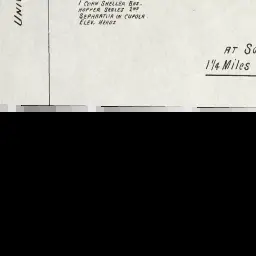 1 CORN SHELLER BAS-
HOPPER SCALES 2ND
SEPARATOR IN CUPOLA
ELEV. HEADS
AT
1¼ Miles